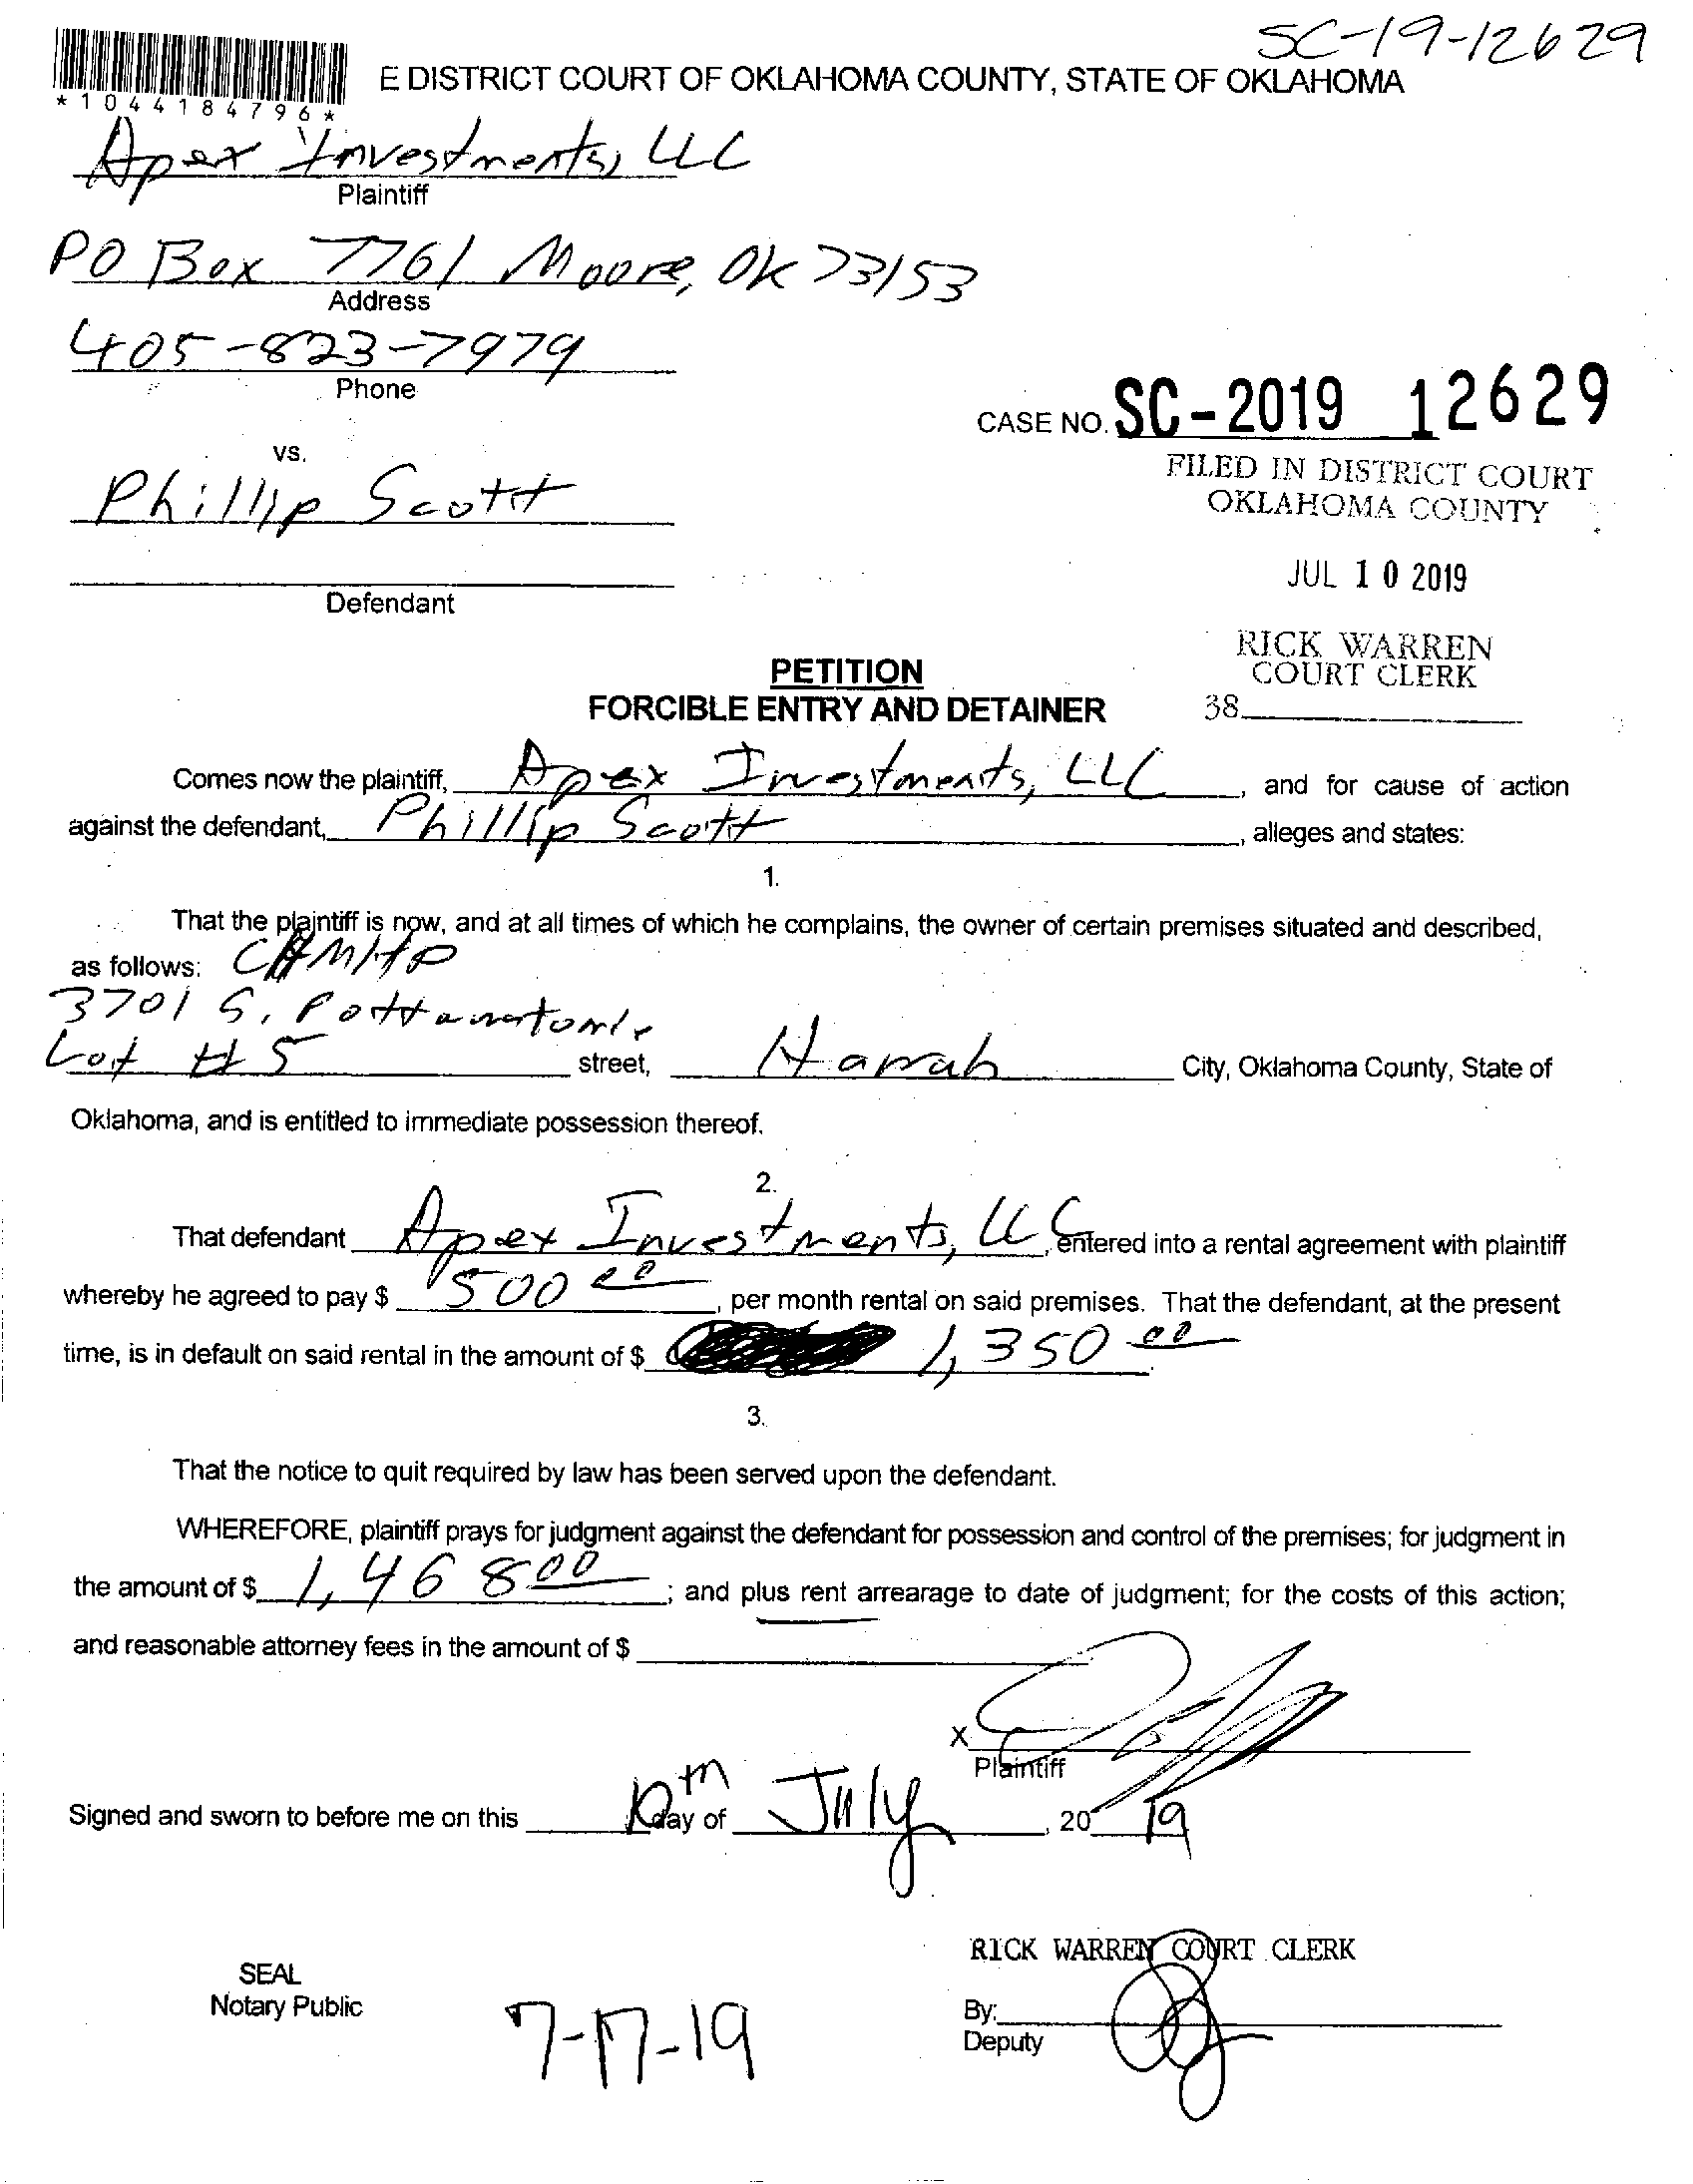 SC-19-12629
E DISTRICT COURT OF OKLAHOMA COUNTY, STATE OF OKLAHOMA
*1044184796*
Apex Investments, LLC
Plaintiff
PO Box 7761 Moore, OK 73153
Address
405-823-7979
Phone
CASE NO. SC-2019 12629
vs.
FILED IN DISTRICT COURT
OKLAHOMA COUNTY
Phillip Scott
JUL 10 2019
Defendant
RICK WARREN
COURT CLERK
38
PETITION
FORCIBLE ENTRY AND DETAINER
Comes now the plaintiff, Apex Investments, LLC, and for cause of action
against the defendant, Phillip Scott, alleges and states:
1.
That the plaintiff is now, and at all times of which he complains, the owner of certain premises situated and described,
as follows: CHMHP
3701 S. Pottawatomie
Lot #5 street, Harrah City, Oklahoma County, State of
Oklahoma, and is entitled to immediate possession thereof.
2.
That defendant Apex Investments, LLC, entered into a rental agreement with plaintiff
whereby he agreed to pay $ 500 00, per month rental on said premises. That the defendant, at the present
time, is in default on said rental in the amount of $ 1,350 00.
3.
That the notice to quit required by law has been served upon the defendant.
WHEREFORE, plaintiff prays for judgment against the defendant for possession and control of the premises; for judgment in
the amount of $ 1,468 00; and plus rent arrearage to date of judgment; for the costs of this action;
and reasonable attorney fees in the amount of $
X
Plaintiff
Signed and sworn to before me on this 10th day of July, 2019
RICK WARREN COURT CLERK
SEAL
Notary Public
7-17-19
By:
Deputy